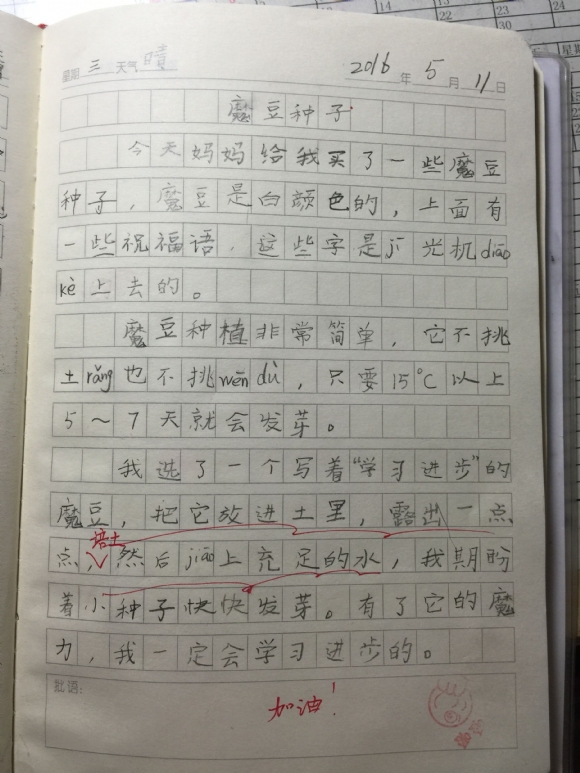 星期 三 天气 晴 2016 年 5 月 11 日
魔豆种子
今天妈妈给我买了一些魔豆
种子，魔豆是白颜色的，上面有
一些祝福语，这些字是jī光机diāo
kè上去的。
魔豆种植非常简单，它不挑
土rǎng也不挑wēn dù，只要15°C以上
5～7天就会发芽。
我选了一个写着“学习进步”的
魔豆，把它放进土里，露出一点
培土
点，然后jiāo上充足的水，我期盼
着小种子快快发芽。有了它的魔
力，我一定会学习进步的。
批语：
加油！